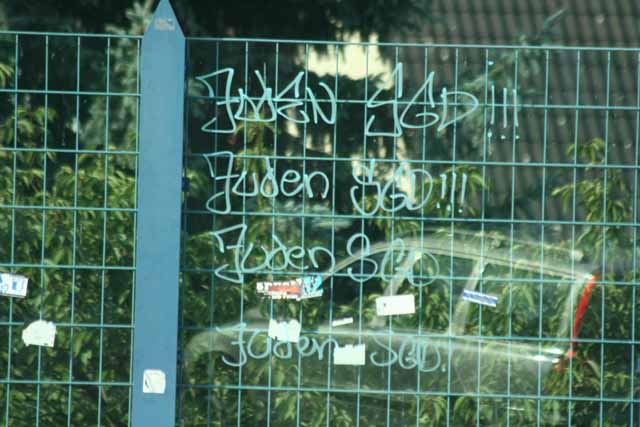 JUDEN SGD!!!
Juden SGD!!!
Juden SGD
Juden SGD!